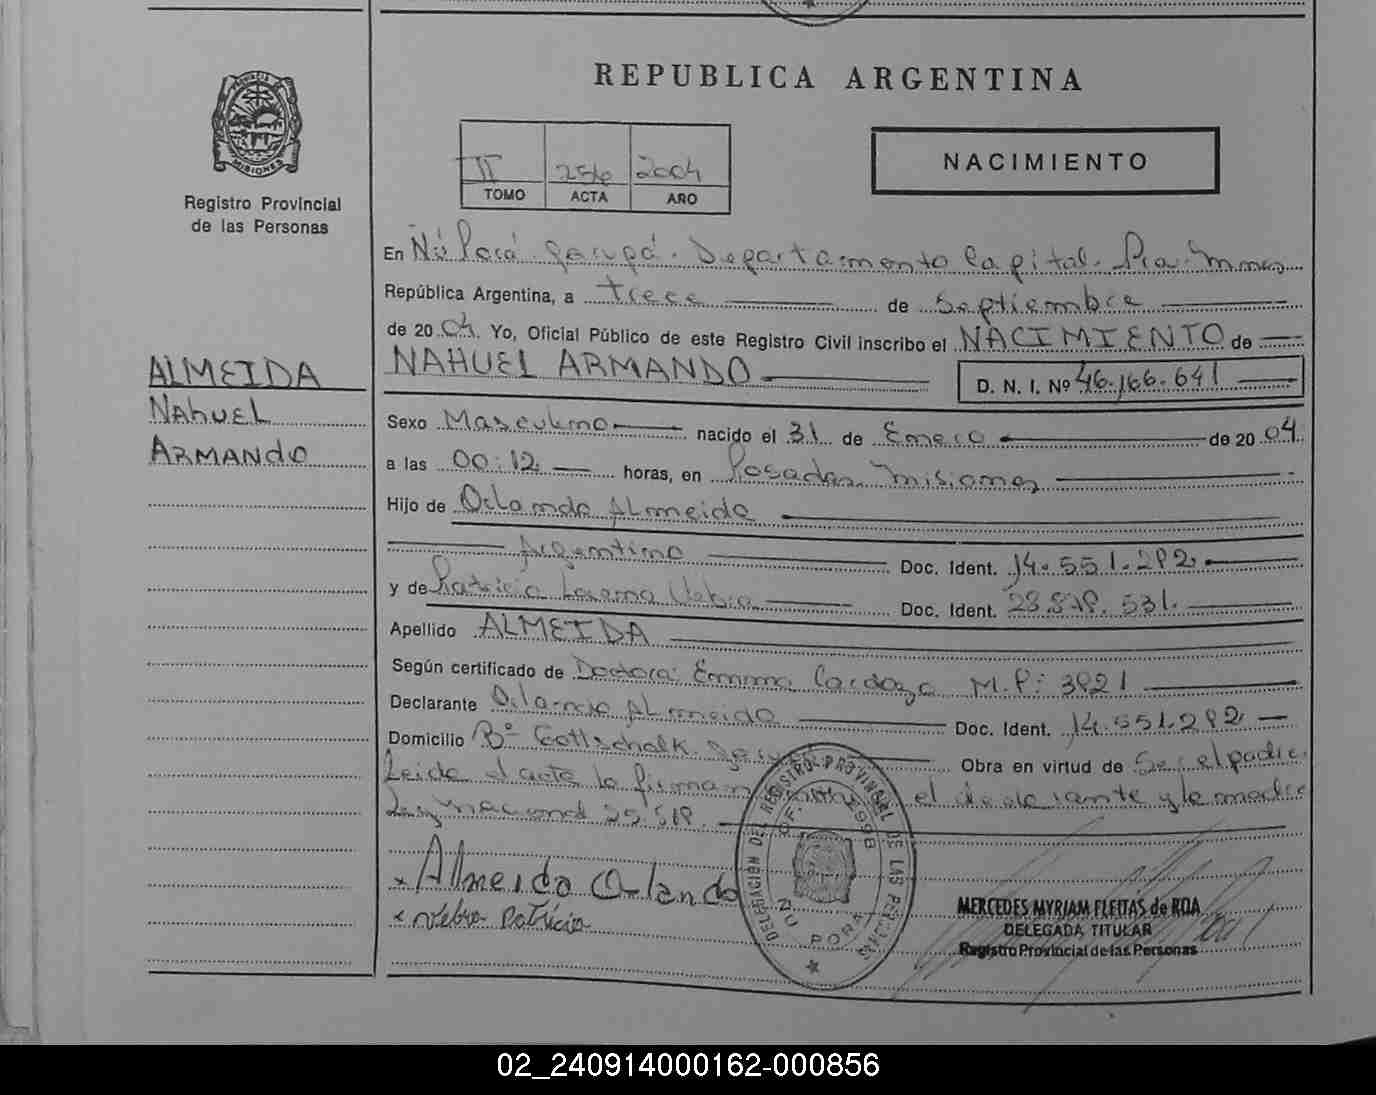 REPUBLICA ARGENTINA
PROVINCIA
MISIONES
Registro Provincial
de las Personas
II 256 2004
TOMO ACTA AÑO
NACIMIENTO
En Ñú Porá. Garupá. Departamento Capital. Pra. Mnes
República Argentina, a trece de septiembre
de 2004. Yo, Oficial Público de este Registro Civil inscribo el NACIMIENTO de
NAHUEL ARMANDO D. N. I. Nº 46.166.641
ALMEIDA
NAHUEL
ARMANDO
Sexo Masculino nacido el 31 de Enero de 2004
a las 00:12 horas, en Posadas Misiones
Hijo de Orlando Almeida
Argentino Doc. Ident. 14.551.292
y de Patricia Doc. Ident. 28.878.531.
Apellido ALMEIDA
Según certificado de Doctora: Emma Cardozo M.P: 3921
Declarante Orlando Almeida Doc. Ident. 14.551.292
Domicilio Bº Gottschalk Obra en virtud de Ser el padre
Leída el acta la firman el declarante y la madre
Ley nacional
x Almeida Orlando
x Patricia
DELEGACION DEL REGISTRO PROVINCIAL DE LAS PERSONAS
ÑU PORA
MERCEDES MYRIAM FLEITAS de ROA
DELEGADA TITULAR
Registro Provincial de las Personas
02_240914000162-000856